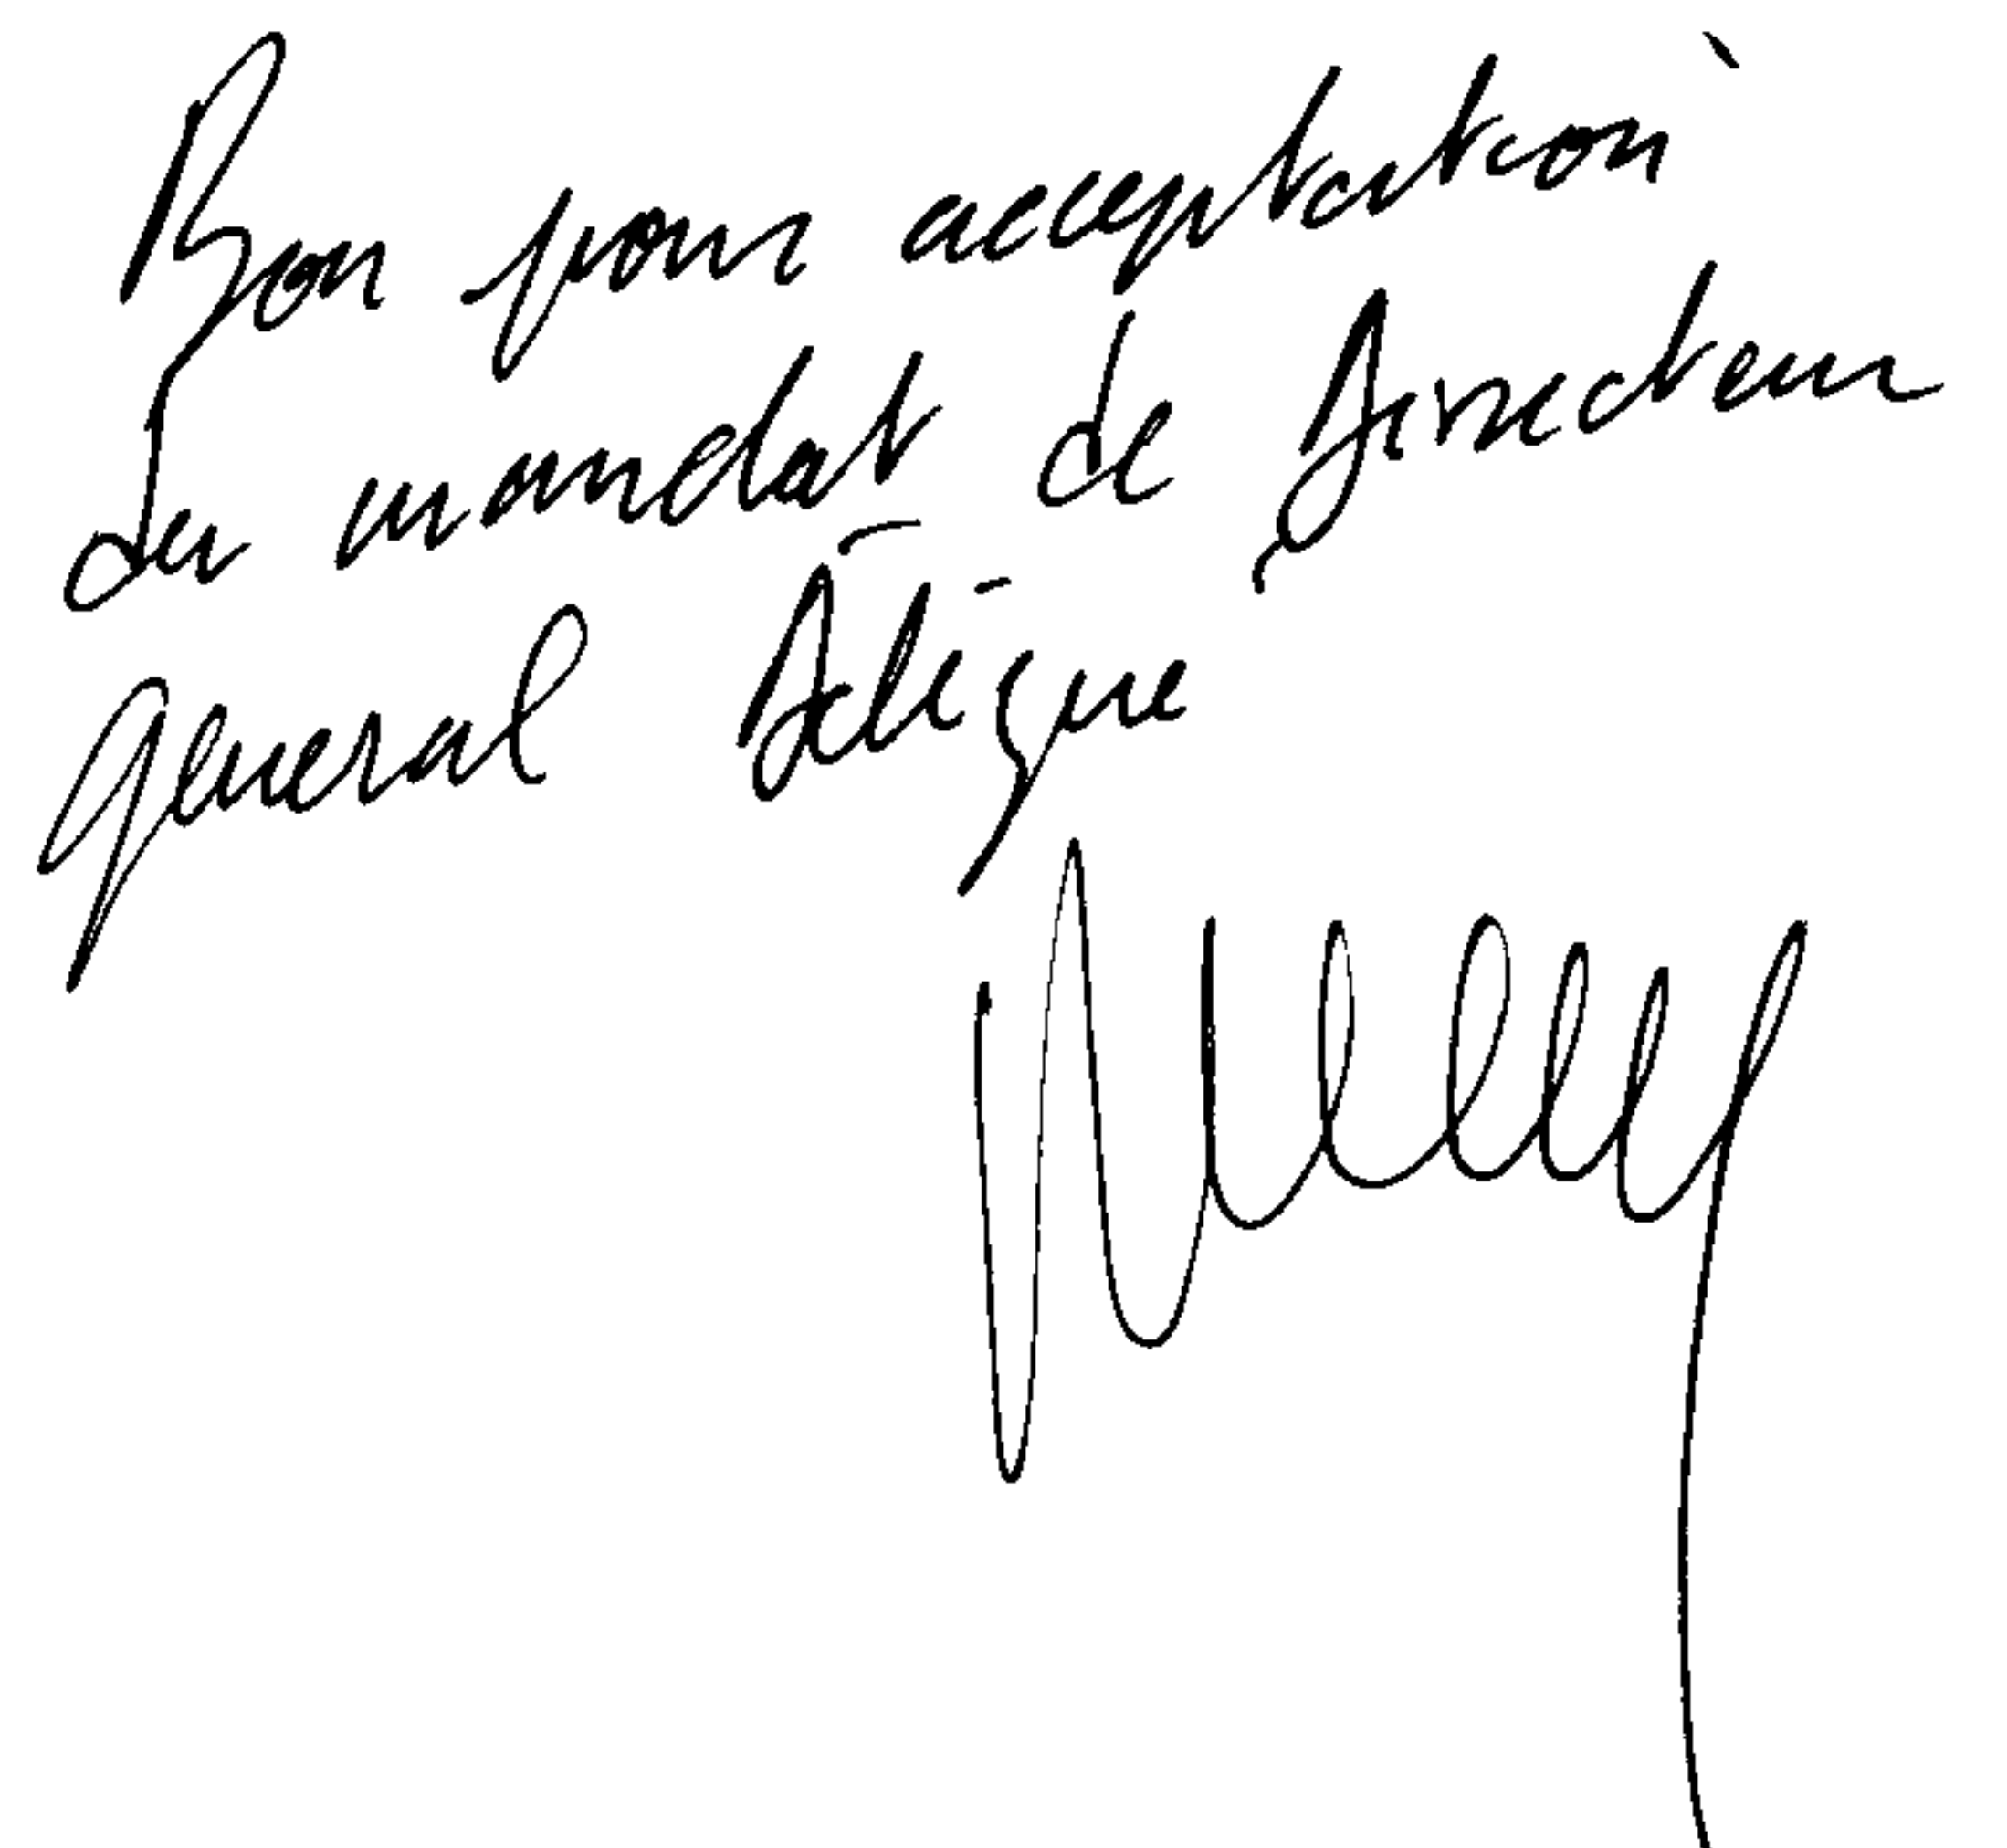 Bon pour acceptation
du mandat de Directeur
general Délégué